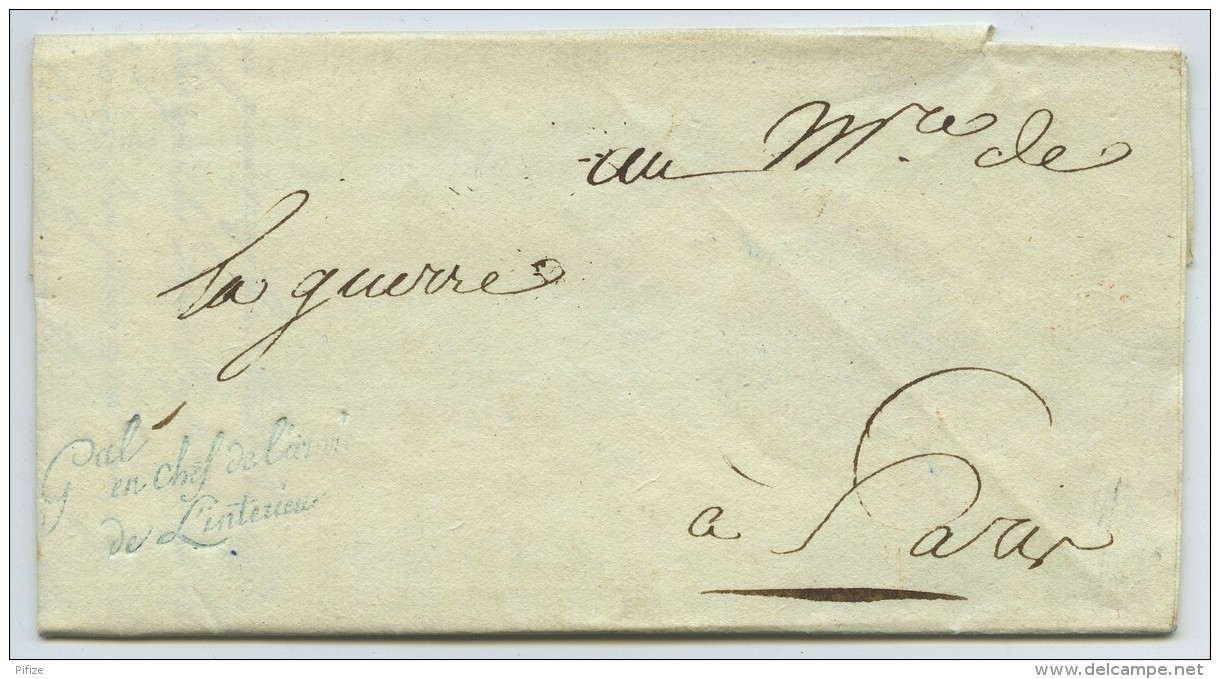 au M.re de
la guerre
à Paris
Gal
en chef de l'armé
de L'interieur
Pifize
www.delcampe.net